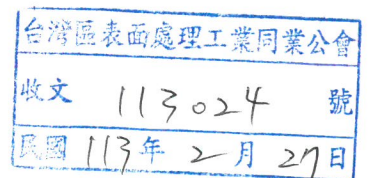 台灣區表面處理工業同業公會
收文 113024 號
民國 113 年 2 月 27 日